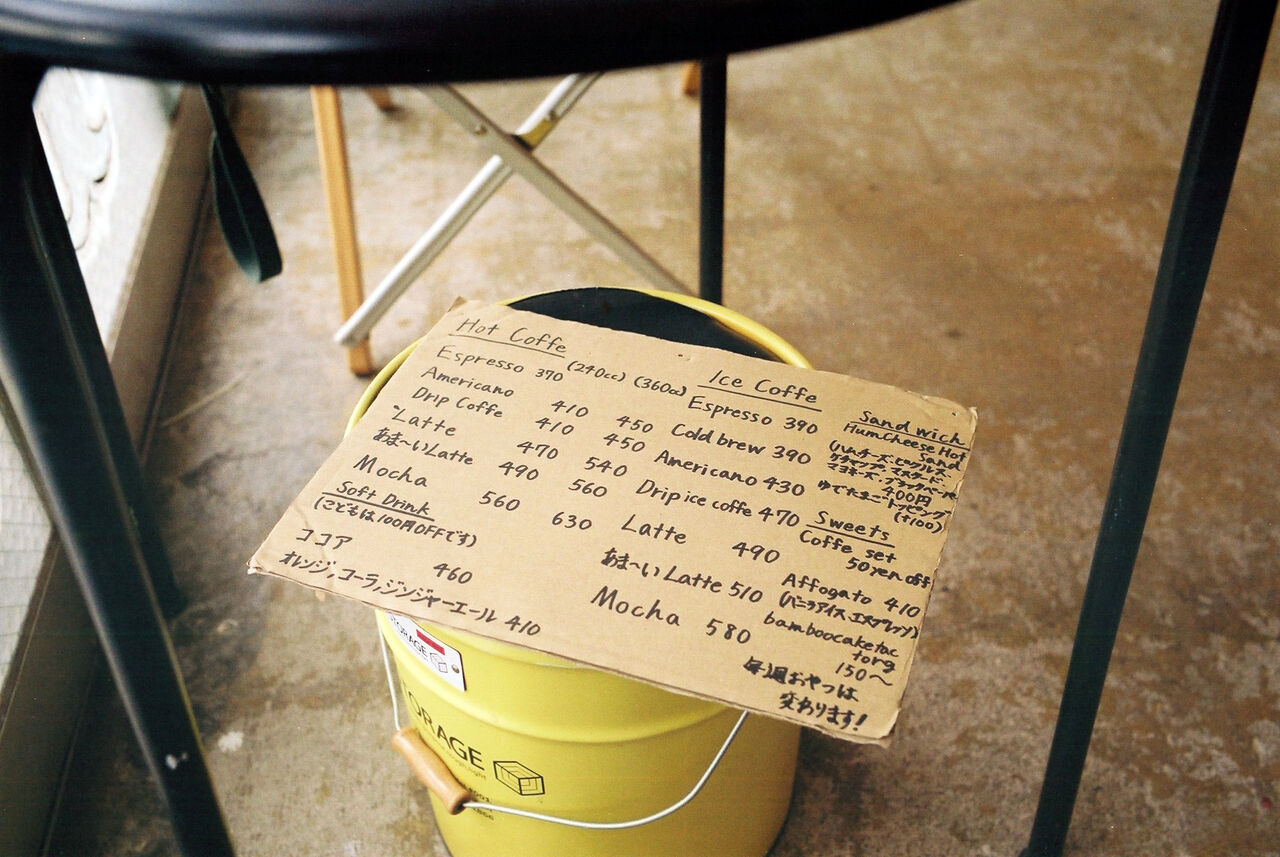 Hot Coffe
(240cc) (360cc)
Espresso 370
Americano 410 450
Drip Coffe 410 450
Latte 470 540
あま〜いLatte 490 560
Mocha 560 630
Soft Drink
(こどもは100円OFFです)
ココア 460
オレンジ,コーラ,ジンジャーエール 410
Ice Coffe
Espresso 390
Cold brew 390
Americano 430
Drip ice coffe 470
Latte 490
あま〜いLatte 510
Mocha 580
Sandwich
HumCheese Hot
Sand
(ハム・チーズ・ピクルス
ケチャップ・マスタード
マヨネーズ・ブラックペーパー
400円
ゆでたまごトッピング
(+100)
Sweets
Coffe set
50yen off
Affogato 410
(バニラアイス、エスプレッソ)
bamboocake
torg
150〜
毎週おやつは
変わります!
STORAGE
ORAGE